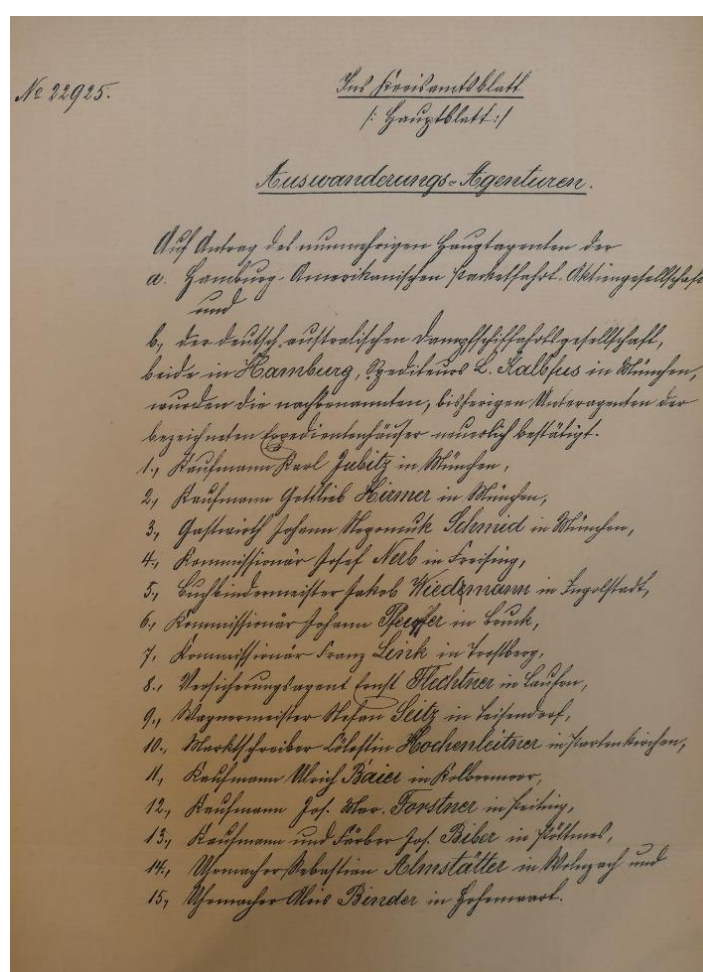 No 22925.
Ins Kreisamtsblatt
/: Hauptblatt :/
Auswanderungs-Agenturen.
Auf Antrag des nunmehrigen Hauptagenten der
a. Hamburg-Amerikanischen Packetfahrt-Aktiengesellschaft
und
b, der deutsch-australischen Dampfschiffahrtsgesellschaft,
beide in Hamburg, Spediteurs L. Kalbfus in München,
wurden die nachbenannten, bisherigen Unteragenten der
bezeichneten Expedientenhäuser neuerlich bestätigt.
1., Kaufmann Karl Jubitz in München,
2, Kaufmann Gottlieb Hirmer in München,
3, Gastwirth Johann Nepomuk Schmid in München,
4., Kommissionär Josef Nerb in Freising,
5., Buchbindermeister Jakob Wiedemann in Ingolstadt,
6., Kommissionär Johann Pfeiffer in Bruck,
7, Kommissionär Franz Lenk in Trostberg,
8., Versicherungsagent Ernst Flechtner in Laufen,
9., Wagnermeister Stefan Seitz in Teisendorf,
10., Marktschreiber Cölestin Hochenleitner in Partenkirchen,
11, Kaufmann Ulrich Baier in Kolbermoor,
12., Kaufmann Jos. Mar. Forstner in Peiting,
13., Kaufmann und Färber Jos. Biber in Pöttmes,
14., Uhrmacher Sebastian Almstätter in Wolnzach und
15, Uhrmacher Alois Binder in Hohenwart.